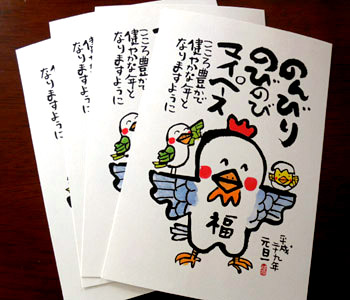 のんびり
のびのび
マイペース
こころ豊かで
健やかな年と
なりますように
福
平成二十九年
元旦
こころ豊かで
健やかな年と
なりますように
健やかな年と
なりますように
なりますように